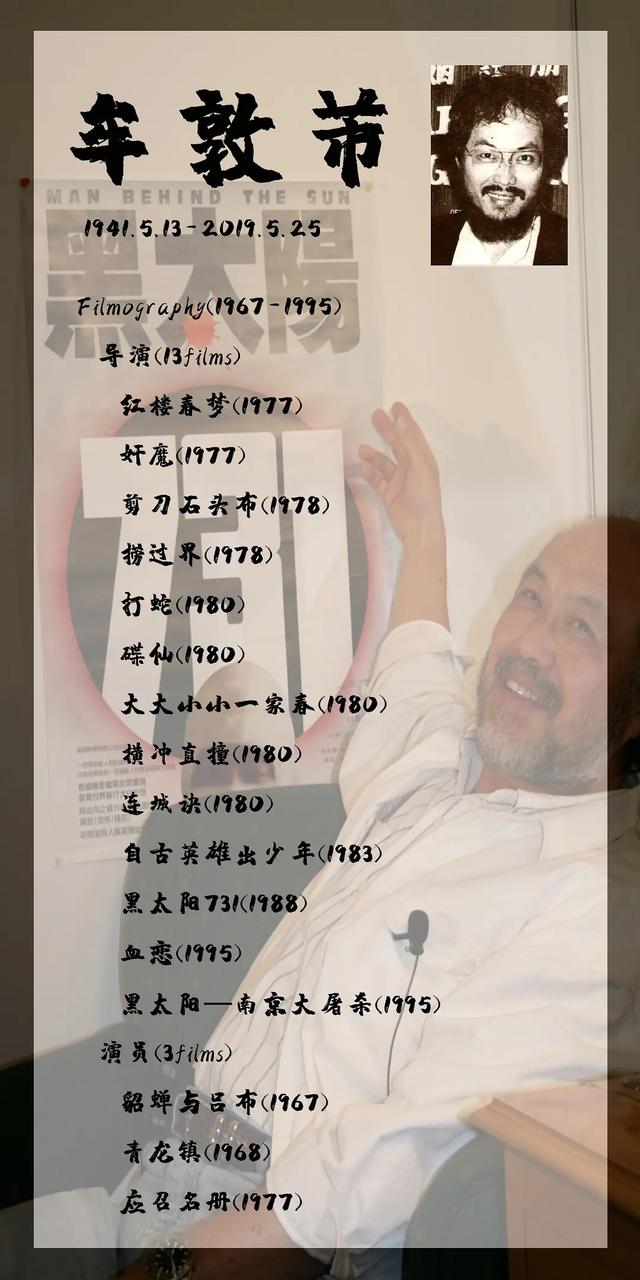 牟敦芾
1941.5.13-2019.5.25
MAN BEHIND THE SUN
黑太陽
731
Filmography(1967-1995)
导演(13films)
红楼春梦(1977)
奸魔(1977)
剪刀石头布(1978)
捞过界(1978)
打蛇(1980)
碟仙(1980)
大大小小一家春(1980)
横冲直撞(1980)
连城诀(1980)
自古英雄出少年(1983)
黑太阳731(1988)
血恋(1995)
黑太阳—南京大屠杀(1995)
演员(3films)
貂蝉与吕布(1967)
青龙镇(1968)
应召名册(1977)